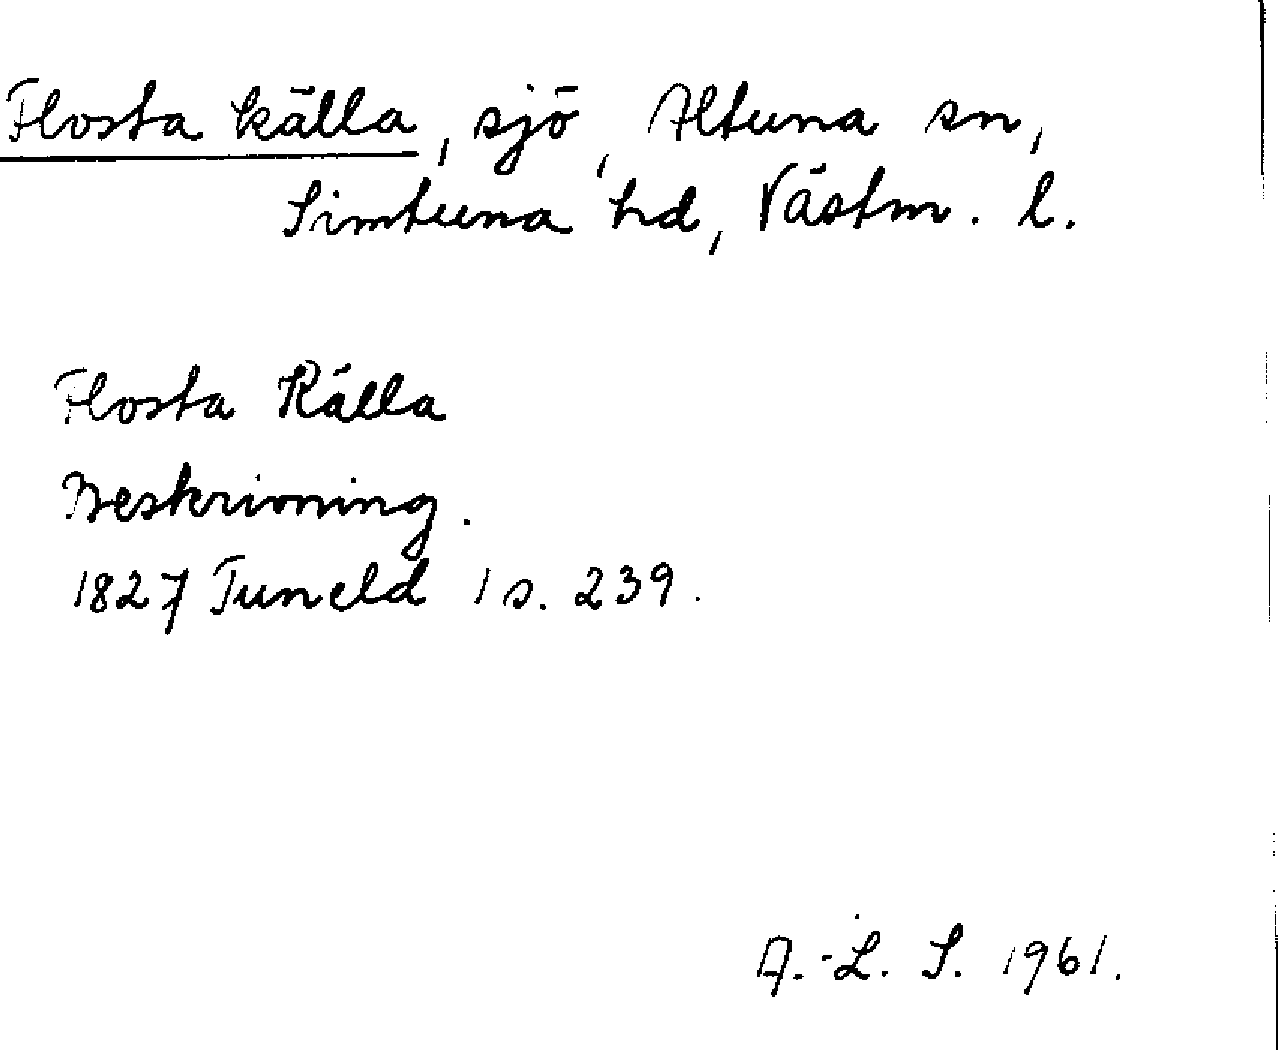 Flosta källa, sjö, Altuna sn,
Simtuna hd, Västm. l.
Flosta Källa
Beskrivning.
1827 Tuneld 1 s. 239.
A.-L. S. 1961.